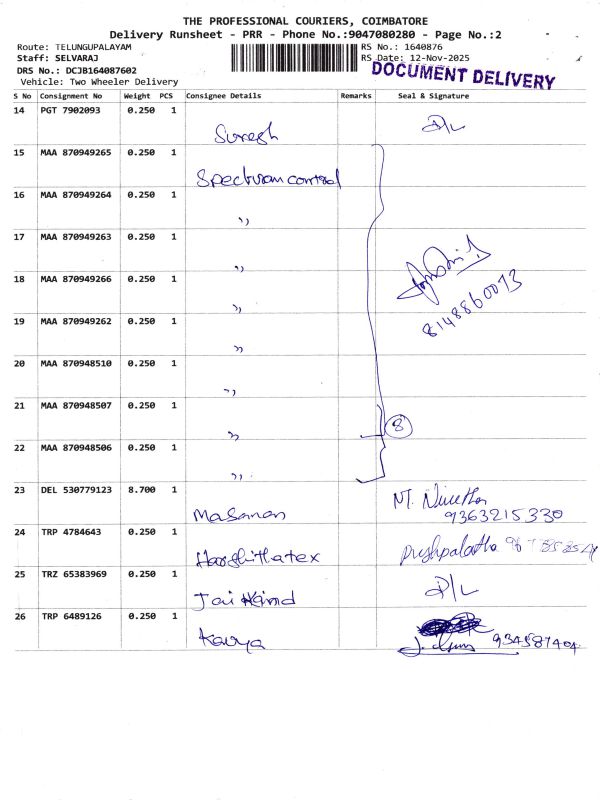 THE PROFESSIONAL COURIERS, COIMBATORE
Delivery Runsheet - PRR - Phone No.:9047080280 - Page No.:2
Route: TELUNGUPALAYAM RS No.: 1640876
Staff: SELVARAJ RS Date: 12-Nov-2025
DRS No.: DCJB164087602 DOCUMENT DELIVERY
Vehicle: Two Wheeler Delivery
S No Consignment No Weight PCS Consignee Details Remarks Seal & Signature
14 PGT 7902093 0.250 1 Suresh D/L
15 MAA 870949265 0.250 1 Spectrum control
16 MAA 870949264 0.250 1 ,,
17 MAA 870949263 0.250 1 ,,
18 MAA 870949266 0.250 1 ,,
8148860073
19 MAA 870949262 0.250 1 ,,
20 MAA 870948510 0.250 1 ,,
21 MAA 870948507 0.250 1 ,, 8
22 MAA 870948506 0.250 1 ,,
23 DEL 530779123 8.700 1 Masanan
9363215330
24 TRP 4784643 0.250 1 Harshithatex Pushpalatha
25 TRZ 65383969 0.250 1 Jai Hind D/L
26 TRP 6489126 0.250 1 Kavya 934587404